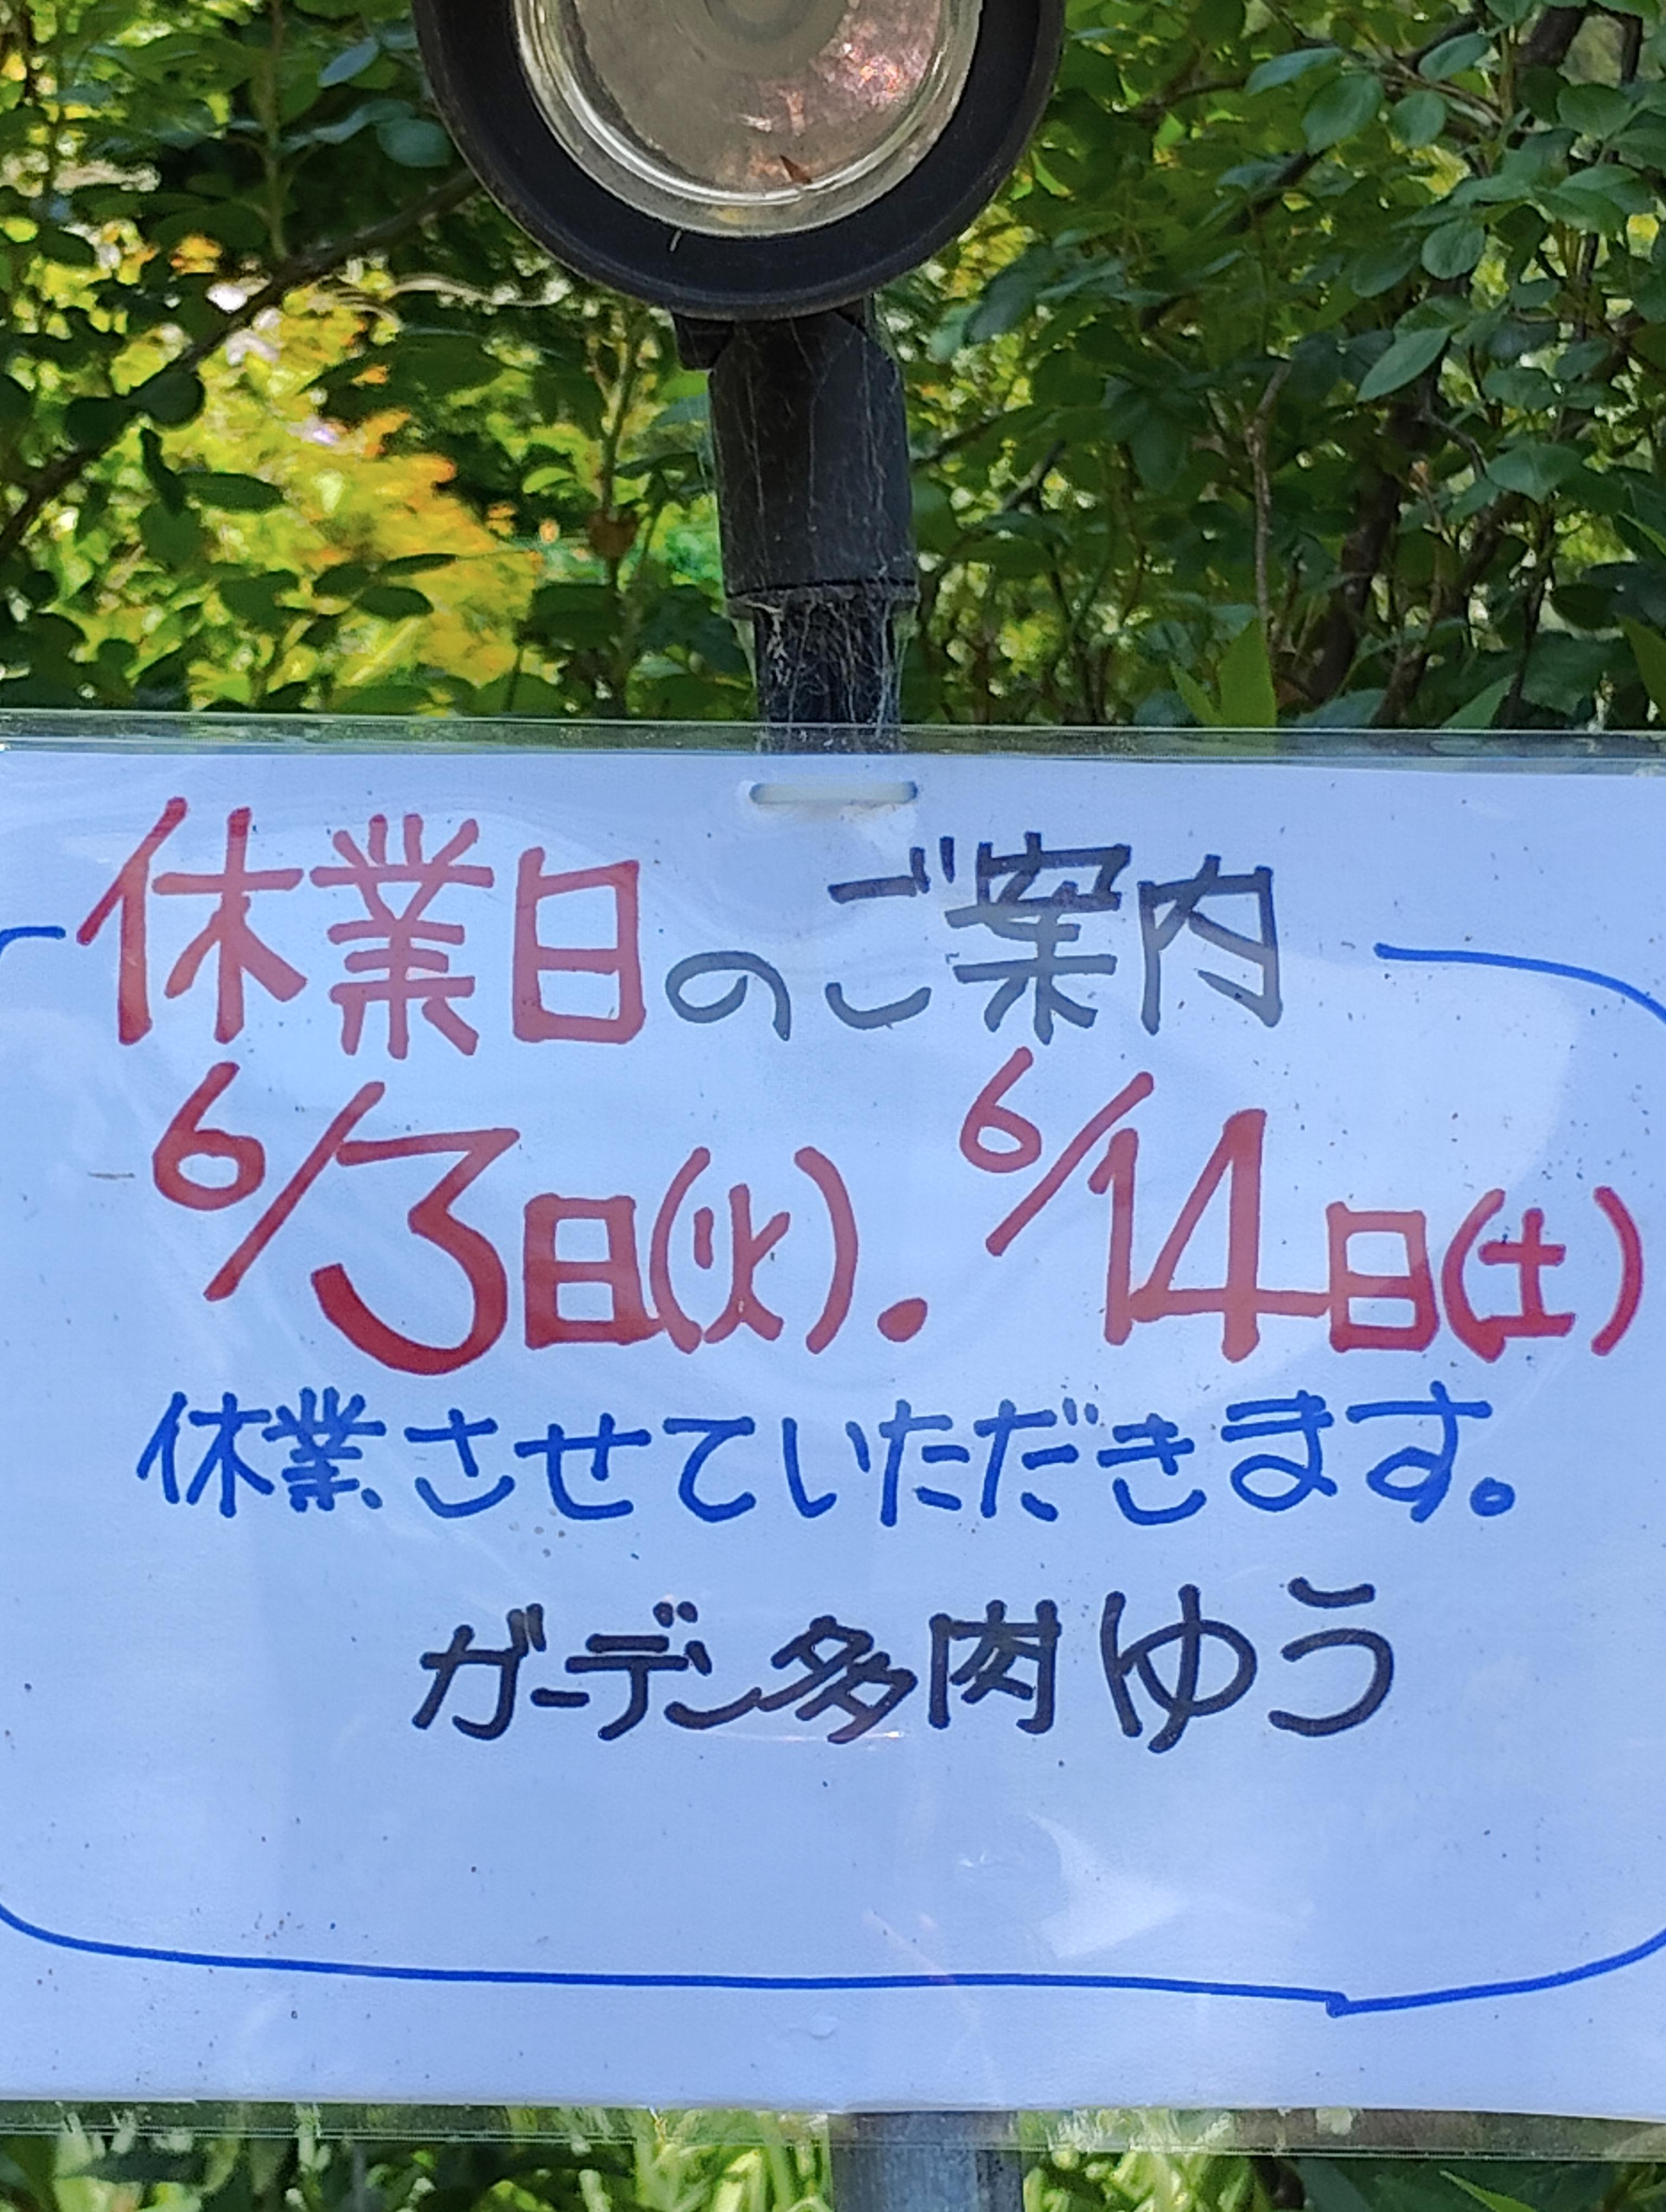 休業日のご案内
6/3日(火)．6/14日(土)
休業させていただきます。
ガーデン多肉ゆう